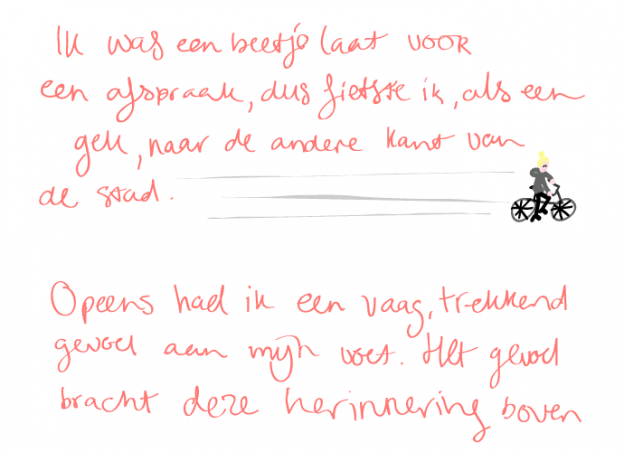 Ik was een beetje laat voor
een afspraak, dus fietste ik, als een
gek, naar de andere kant van
de stad.
Opeens had ik een vaag, trekkend
gevoel aan mijn voet. Het gevoel
bracht deze herinnering boven